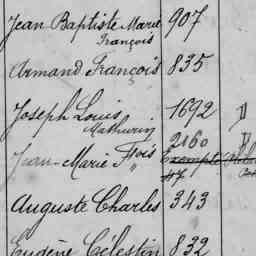 Jean Baptiste Marie 907
François
Armand François 835
Joseph Louis 1692
Mathurin
2160
Jean-Marie Fçois Exempté
47
Auguste Charles 343
Eugène Célestin 832